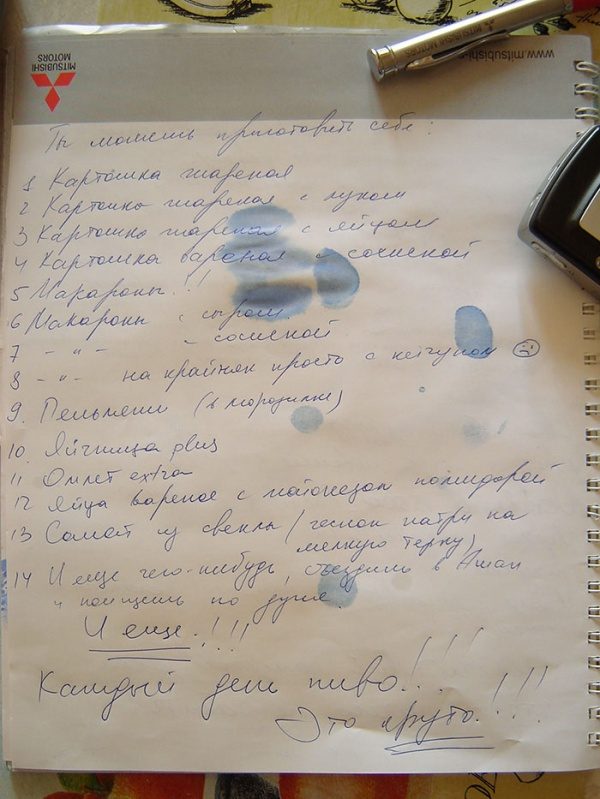 MITSUBISHI
MOTORS
MITSUBISHI MOTORS
www.mitsubishi-
Ты можешь приготовить себе:
1 Картошка жареная
2 Картошка жареная с луком
3 Картошка жареная с яйцом
4 Картошка вареная с сосиской
5 Макароны!!
6 Макароны с сыром
7 -"- с сосиской
8 -"- на крайняк просто с кетчупом ☹
9. Пельмени (в морозилке)
10. Яйчница plus
11 Омлет extra
12 Яйца вареное с майонезом помидорой
13 Салат из свеклы (чеснок натри на
мелкую терку)
14 И еще чего-нибудь, съездишь в Ашан
и поищешь по душе.
И еще!!!!
Каждый день пиво...!!!
Это круто.!!!